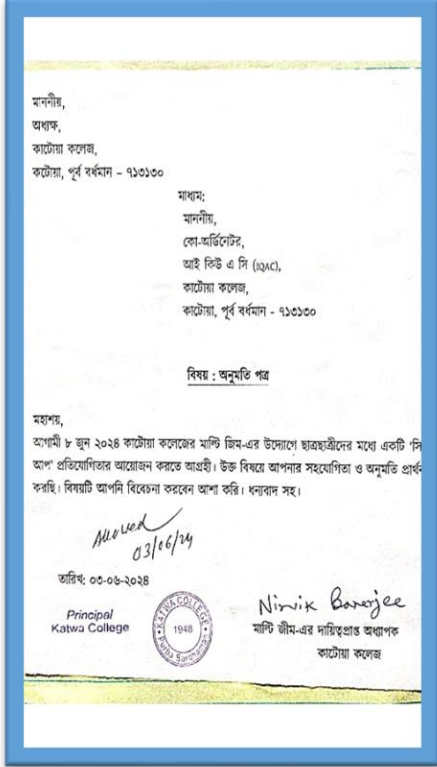 মাননীয়,
অধ্যক্ষ,
কাটোয়া কলেজ,
কটোয়া, পূর্ব বর্ধমান – ৭১৩১৩০
মাধ্যম:
মাননীয়,
কো-অর্ডিনেটর,
আই কিউ এ সি (IQAC),
কাটোয়া কলেজ,
কাটোয়া, পূর্ব বর্ধমান - ৭১৩১৩০
বিষয় : অনুমতি পত্র
মহাশয়,
আগামী ৮ জুন ২০২৪ কাটোয়া কলেজের মাল্টি জিম-এর উদ্যোগে ছাত্রছাত্রীদের মধ্যে একটি 'সি
আপ' প্রতিযোগিতার আয়োজন করতে আগ্রহী। উক্ত বিষয়ে আপনার সহযোগিতা ও অনুমতি প্রার্থন
করছি। বিষয়টি আপনি বিবেচনা করবেন আশা করি। ধন্যবাদ সহ।
Allowed
03/06/24
তারিখ: ০৩-০৬-২০২৪
Principal
Katwa College
KATWA COLLEGE
1948
Nirvik Banerjee
মাল্টি জীম-এর দায়িত্বপ্রাপ্ত অধ্যাপক
কাটোয়া কলেজ